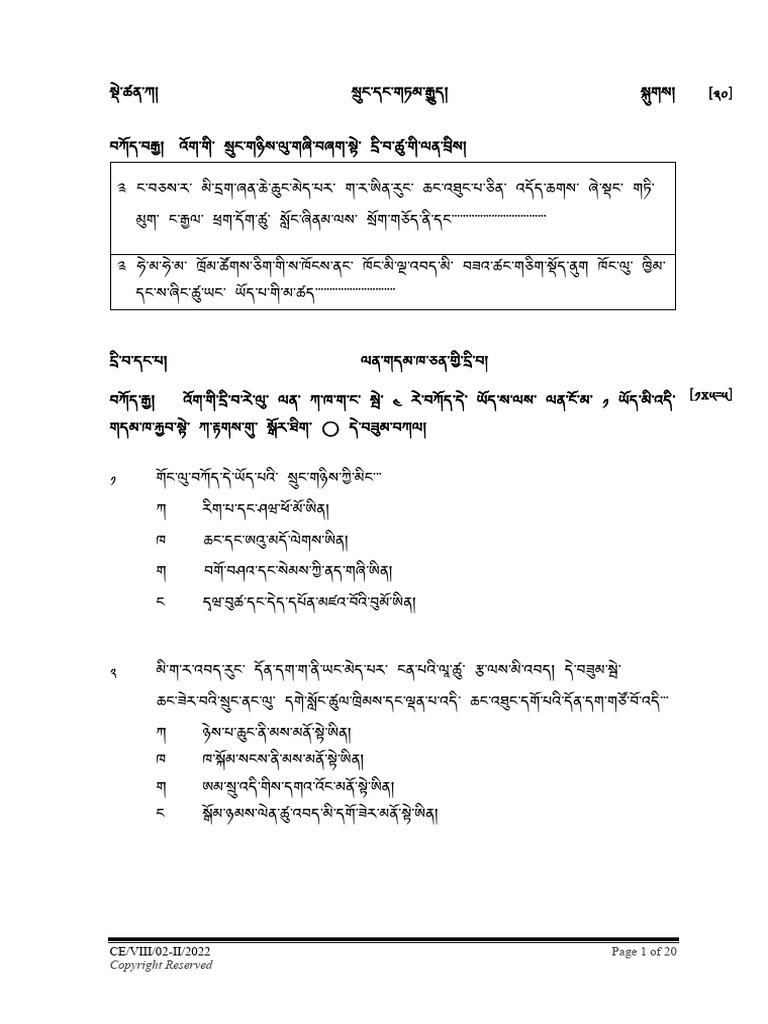 སྡེ་ཚན་ཀ། སྲུང་དང་གཏམ་རྒྱུད། སྐུགས། [༣༠]
བཀོད་བརྒྱ། འོག་གི་ སྲུང་གཉིས་ལུ་གཞི་བཞག་སྟེ་ དྲི་བ་ཚུ་གི་ལན་བྲིས།
༣ ང་བཅས་ར་ མི་དྲག་ཞན་ཆེ་ཆུང་མེད་པར་ ག་ར་ཨིན་རུང་ ཆང་འཐུང་པ་ཅིན་ འདོད་ཆགས་ ཞེ་སྡང་ གཏི་
མུག་ ང་རྒྱལ་ ཕྲག་དོག་ཚུ་ སློང་ཞིནམ་ལས་ སྲོག་གཅོད་ནི་དང་································
༣ ཧེ་མ་ཧེ་མ་ ཁྲོམ་ཚོགས་ཅིག་གི་ས་ཁོངས་ནང་ ཁོང་མི་ལྔ་འབད་མི་ བཟའ་ཚང་གཅིག་སྡོད་ནུག ཁོང་ལུ་ ཁྱིམ་
དང་ས་ཞིང་ཚུ་ཡང་ ཡོད་པ་གི་མ་ཚད····························
དྲི་བ་དང་པ། ལན་གདམ་ཁ་ཅན་གྱི་དྲི་བ།
བཀོད་རྒྱ། འོག་གི་དྲི་བ་རེ་ལུ་ ལན་ ཀ་ཁ་ག་ང་ སྦེ་ ༤ རེ་བཀོད་དེ་ ཡོད་ས་ལས་ ལན་ངོ་མ་ ༡ ཡོད་མི་འདི་ [༡x༥=༥]
གདམ་ཁ་རྐྱབ་སྟེ་ ཀ་རྟགས་གུ་ སྒོར་ཐིག་ ◯ དེ་བཟུམ་བཀལ།
༡ གོང་ལུ་བཀོད་དེ་ཡོད་པའི་ སྲུང་གཉིས་ཀྱི་མིང་···
ཀ རིག་པ་དང་ཤཝ་ཕོ་མོ་ཨིན།
ཁ ཆང་དང་ཨའུ་མདོ་ལེགས་ཨིན།
ག བགོ་བཤའ་དང་སེམས་ཀྱི་ནད་གཞི་ཨིན།
ང དྭཝ་བུཚ་དང་དེད་དཔོན་མཛའ་བོའི་བུམོ་ཨིན།
༢ མི་ག་ར་འབད་རུང་ དོན་དག་ག་ནི་ཡང་མེད་པར་ ངན་པའི་ལཱ་ཚུ་ རྩ་ལས་མི་འབད། དེ་བཟུམ་སྦེ་
ཆང་ཟེར་བའི་སྲུང་ནང་ལུ་ དགེ་སློང་ཚུལ་ཁྲིམས་དང་ལྡན་པ་འདི་ ཆང་འཐུང་དགོ་པའི་དོན་དག་གཙོ་བོ་འདི་···
ཀ ཉེས་པ་ཆུང་ནི་མས་མནོ་སྟེ་ཨིན།
ཁ ཁ་སྐོམ་སངས་ནི་མས་མནོ་སྟེ་ཨིན།
ག ཨམ་སྲུ་འདི་གིས་དགའ་འོང་མནོ་སྟེ་ཨིན།
ང སྒོམ་ཉམས་ལེན་ཚུ་འབད་མི་དགོ་ཟེར་མནོ་སྟེ་ཨིན།
CE/VIII/02-II/2022 Page 1 of 20
Copyright Reserved